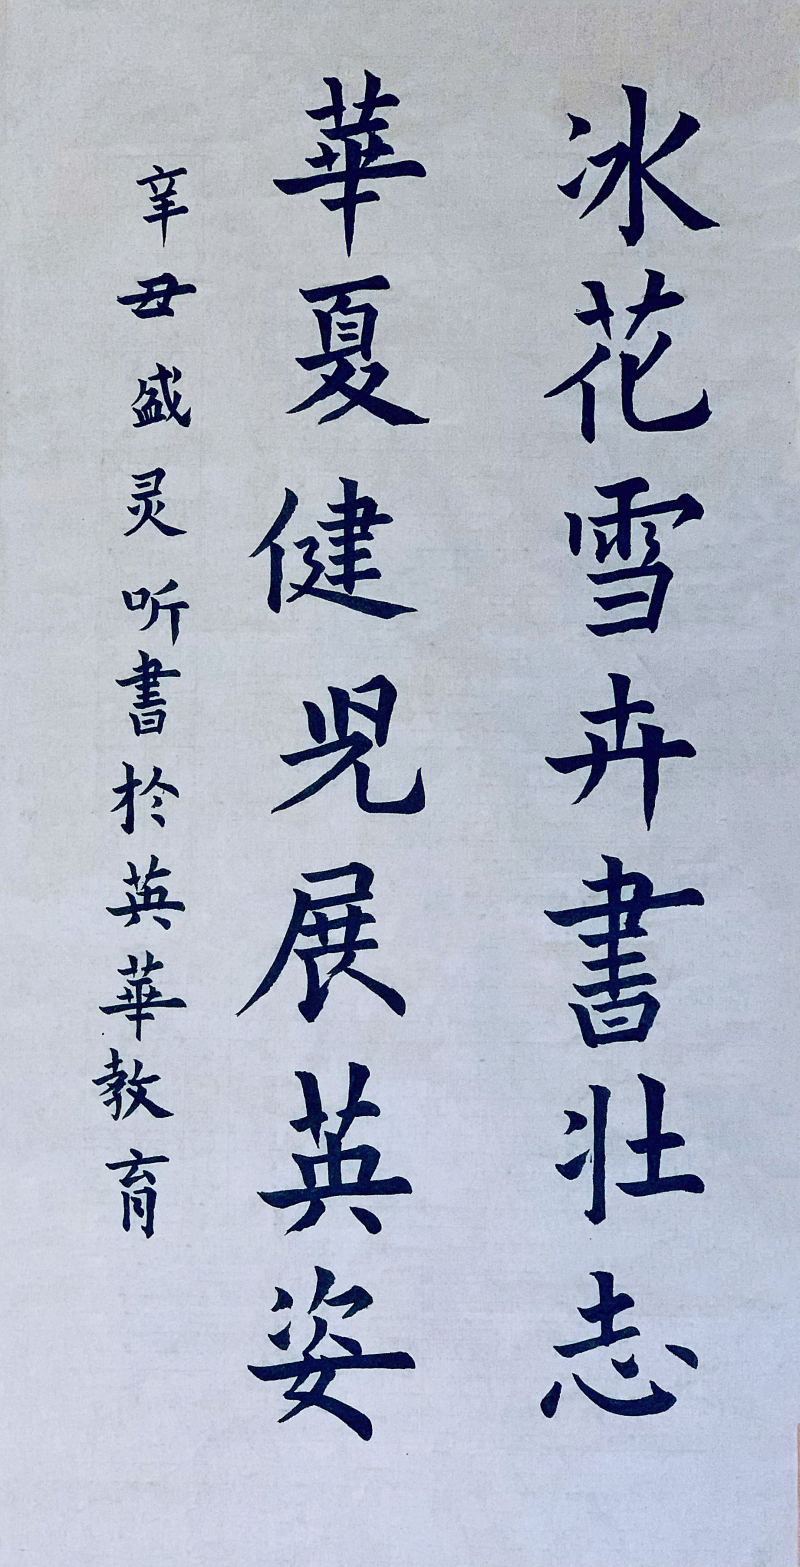 冰花雪卉書壯志
華夏健児展英姿
辛丑盛灵听書於英華教育